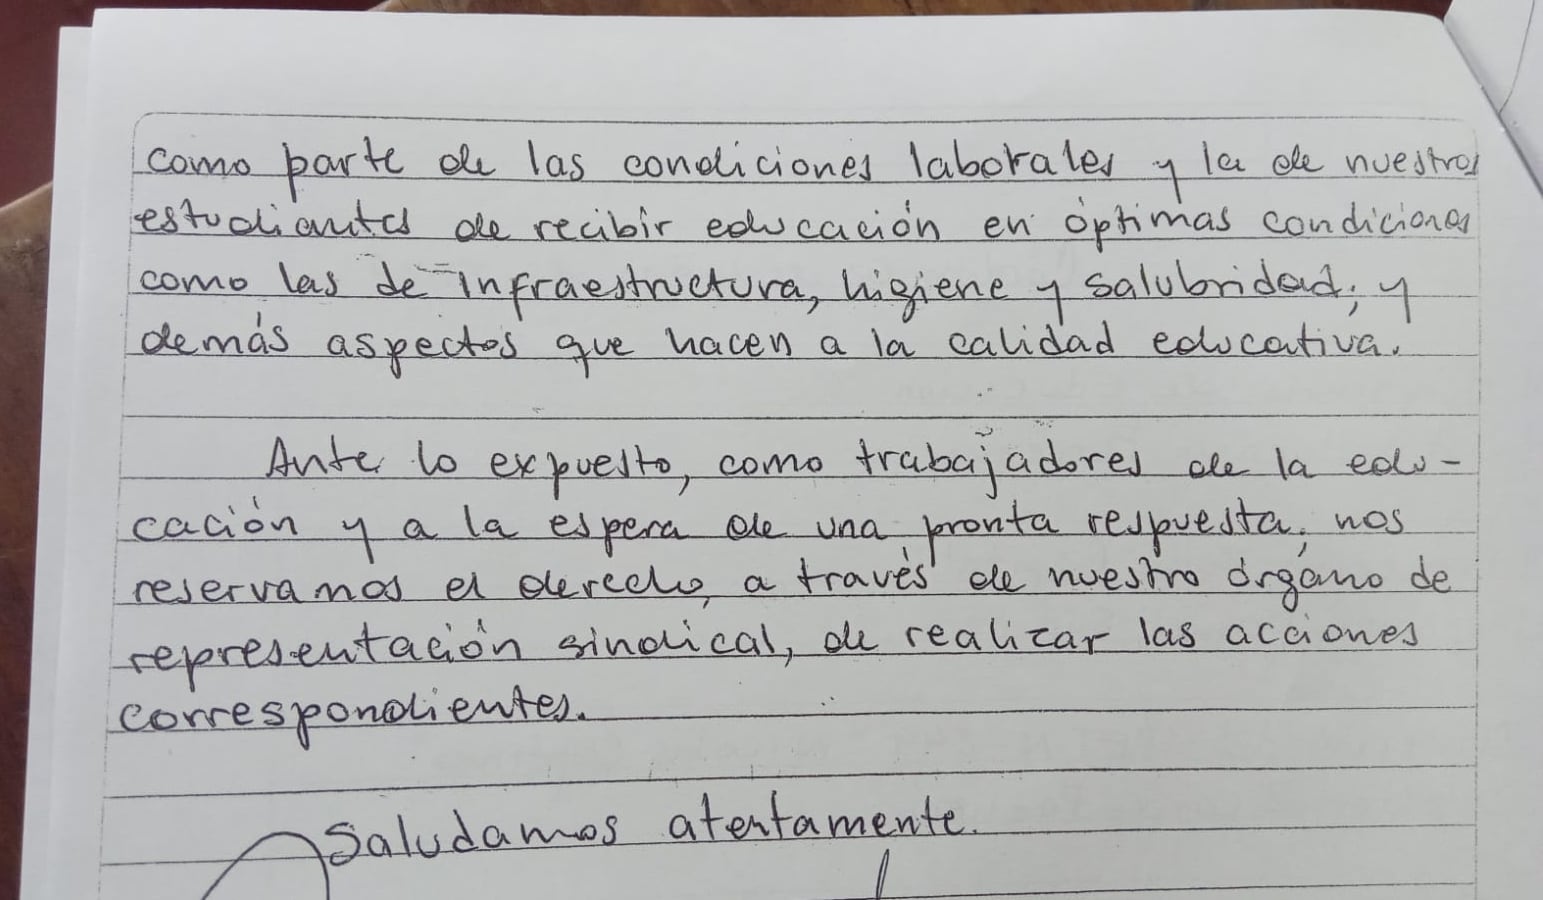 como parte de las condiciones laborales y la de nuestros
estudiantes de recibir educación en óptimas condiciones
como las de infraestructura, higiene y salubridad; y
demás aspectos que hacen a la calidad educativa.
Ante lo expuesto, como trabajadores de la edu-
cación y a la espera de una pronta respuesta, nos
reservamos el derecho, a través de nuestro órgano de
representación sindical, de realizar las acciones
correspondientes.
Saludamos atentamente.